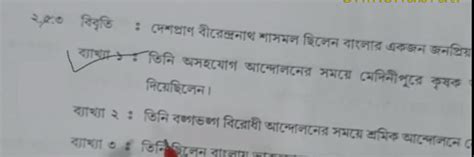 ২.৫.৩ বিবৃতি : দেশপ্রাণ বীরেন্দ্রনাথ শাসমল ছিলেন বাংলার একজন জনপ্রিয়
ব্যাখ্যা ১ : তিনি অসহযোগ আন্দোলনের সময়ে মেদিনীপুরে কৃষক
দিয়েছিলেন।
ব্যাখ্যা ২ : তিনি বঙ্গভঙ্গ বিরোধী আন্দোলনের সময়ে শ্রমিক আন্দোলনে
ব্যাখ্যা ৩ : তিনি ছিলেন বাংলায়